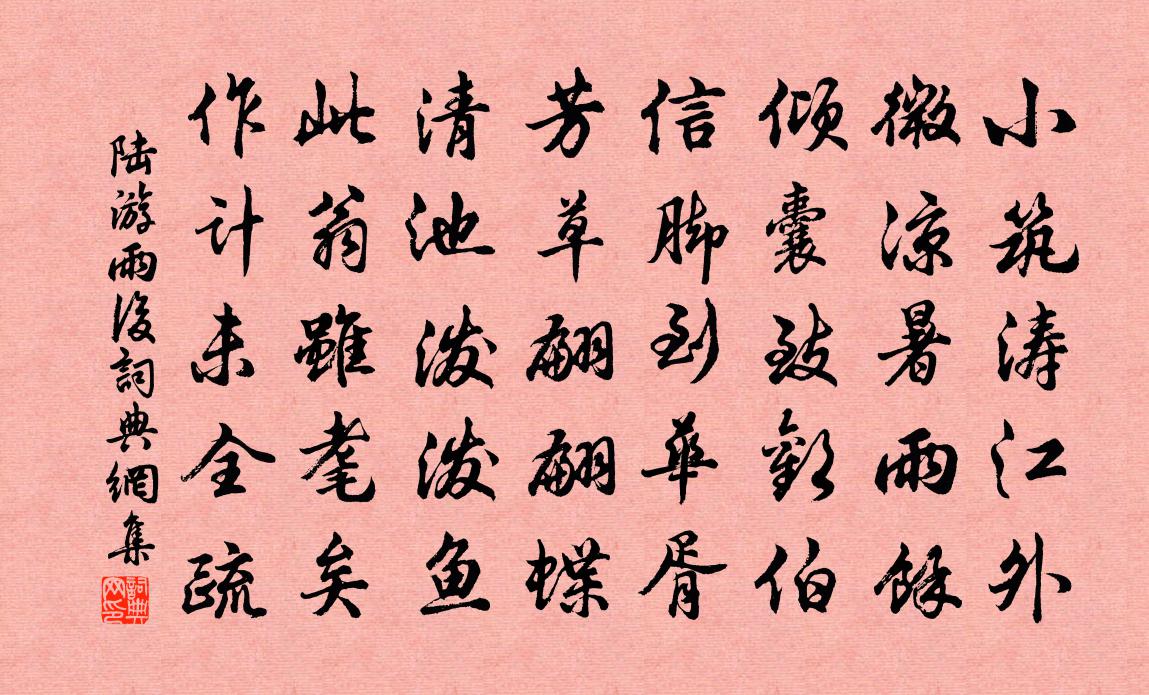 小筑涛江外
微凉暑雨馀
倾囊致歡伯
信脚到華胥
芳草翩翩蝶
清池泼泼鱼
此翁雖耄矣
作计未全疏
陆游雨後詞典網集
詞典網印